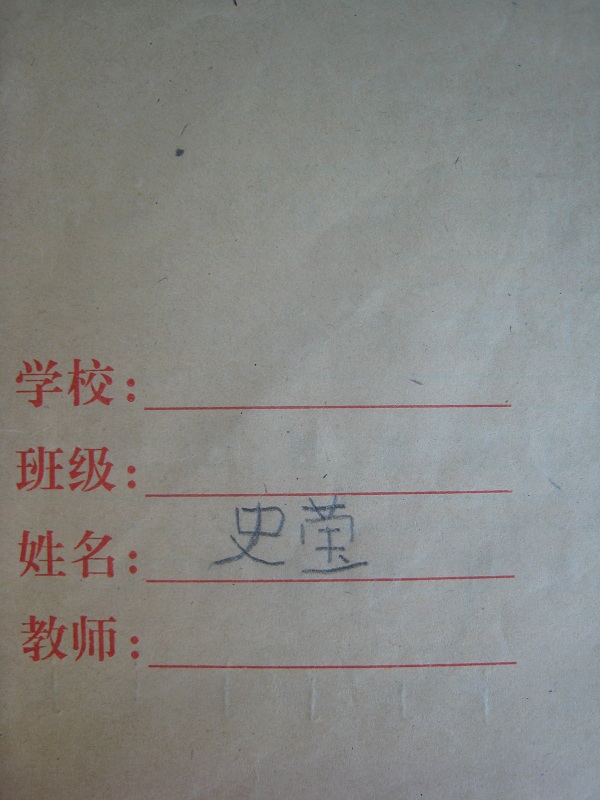 学校:
班级:
姓名: 史莹
教师: